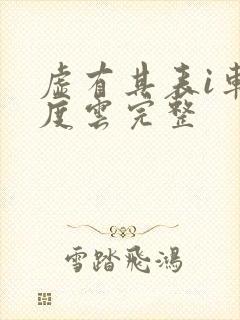 虛有其表i車
度雲完整
雪踏飛鴻